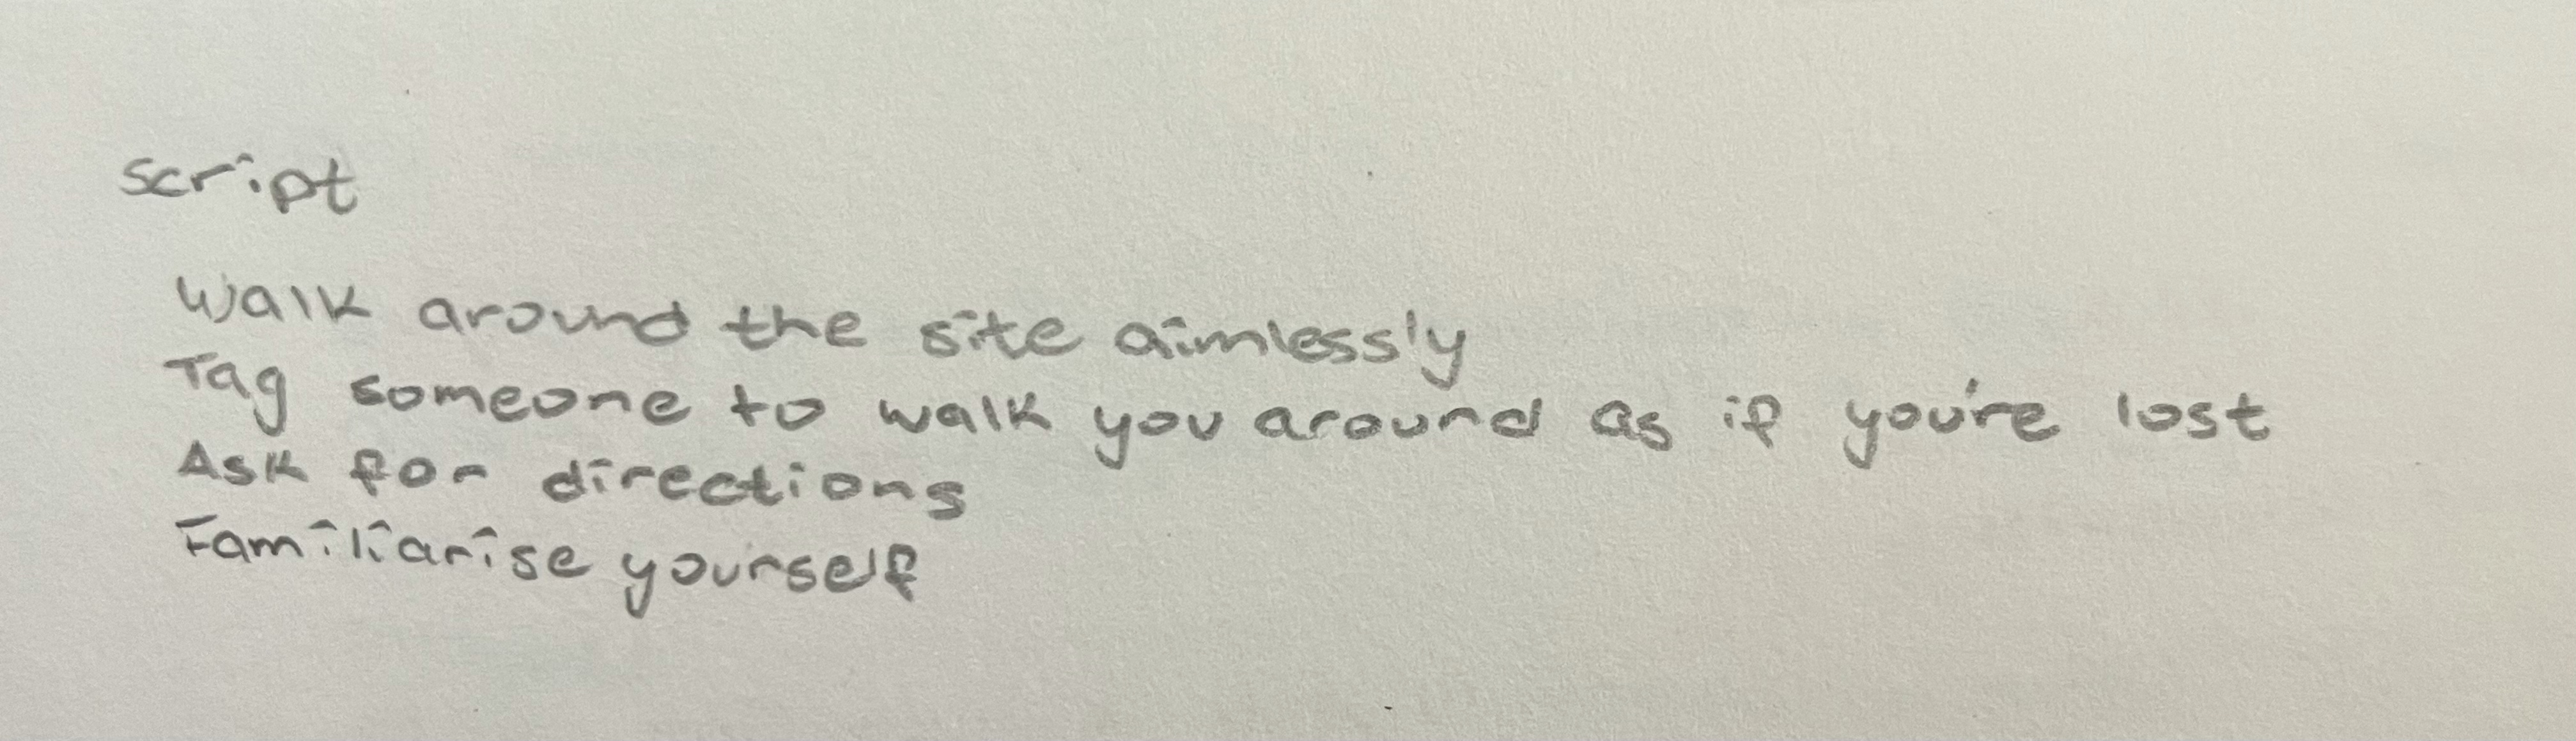 script
Walk around the site aimlessly
Tag someone to walk you around as if you're lost
Ask for directions
Familiarise yourself